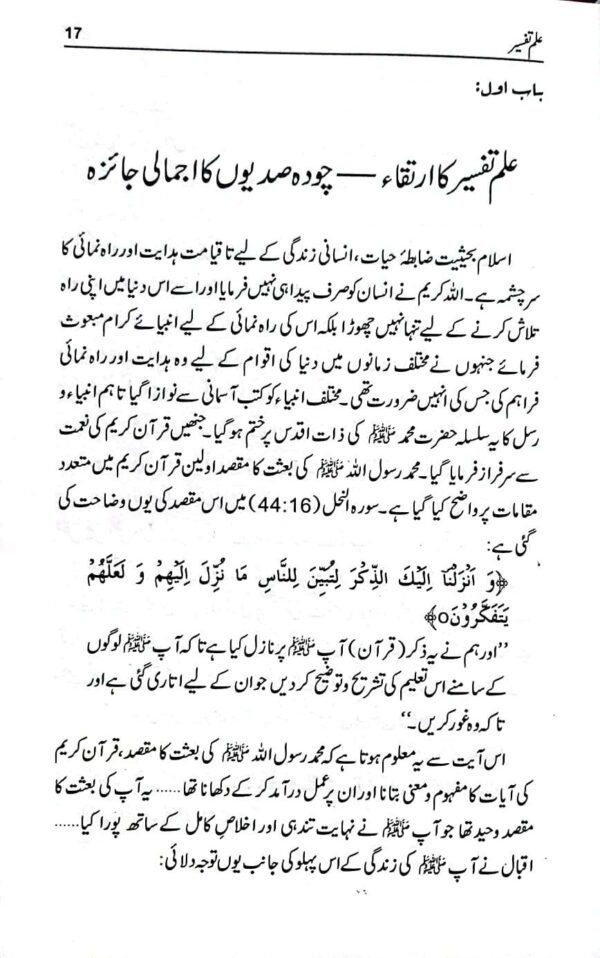 علم تفسیر 17
باب اول:
علم تفسیر کا ارتقاء — چودہ صدیوں کا اجمالی جائزہ
اسلام بحیثیت ضابطۂ حیات، انسانی زندگی کے لیے تا قیامت ہدایت اور راہ نمائی کا
سرچشمہ ہے۔ اللہ کریم نے انسان کو صرف پیدا ہی نہیں فرمایا اور اسے اس دنیا میں اپنی راہ
تلاش کرنے کے لیے تنہا نہیں چھوڑا بلکہ اس کی راہ نمائی کے لیے انبیائے کرام مبعوث
فرمائے جنہوں نے مختلف زمانوں میں دنیا کی اقوام کے لیے وہ ہدایت اور راہ نمائی
فراہم کی جس کی انہیں ضرورت تھی۔ مختلف انبیاء کو کتب آسمانی سے نوازا گیا تاہم انبیاء و
رسل کا یہ سلسلہ حضرت محمد ﷺ کی ذات اقدس پر ختم ہوگیا۔ جنھیں قرآن کریم کی نعمت
سے سرفراز فرمایا گیا۔ محمد رسول اللہ ﷺ کی بعثت کا مقصد اولین قرآن کریم میں متعدد
مقامات پر واضح کیا گیا ہے۔ سورہ النحل (44:16) میں اس مقصد کی یوں وضاحت کی
گئی ہے:
﴿وَ اَنْزَلْنَآ اِلَيْكَ الذِّكْرَ لِتُبَيِّنَ لِلنَّاسِ مَا نُزِّلَ اِلَيْهِمْ وَ لَعَلَّهُمْ
يَتَفَكَّرُوْنَ۝﴾
’’اور ہم نے یہ ذکر (قرآن) آپ ﷺ پر نازل کیا ہے تاکہ آپ ﷺ لوگوں
کے سامنے اس تعلیم کی تشریح و توضیح کر دیں جو ان کے لیے اتاری گئی ہے اور
تاکہ وہ غور کریں۔‘‘
اس آیت سے یہ معلوم ہوتا ہے کہ محمد رسول اللہ ﷺ کی بعثت کا مقصد، قرآن کریم
کی آیات کا مفہوم و معنی بتانا اور ان پر عمل درآمد کر کے دکھانا تھا...... یہ آپ کی بعثت کا
مقصد وحید تھا جو آپ ﷺ نے نہایت تندہی اور اخلاص کامل کے ساتھ پورا کیا......
اقبال نے آپ ﷺ کی زندگی کے اس پہلو کی جانب یوں توجہ دلائی: